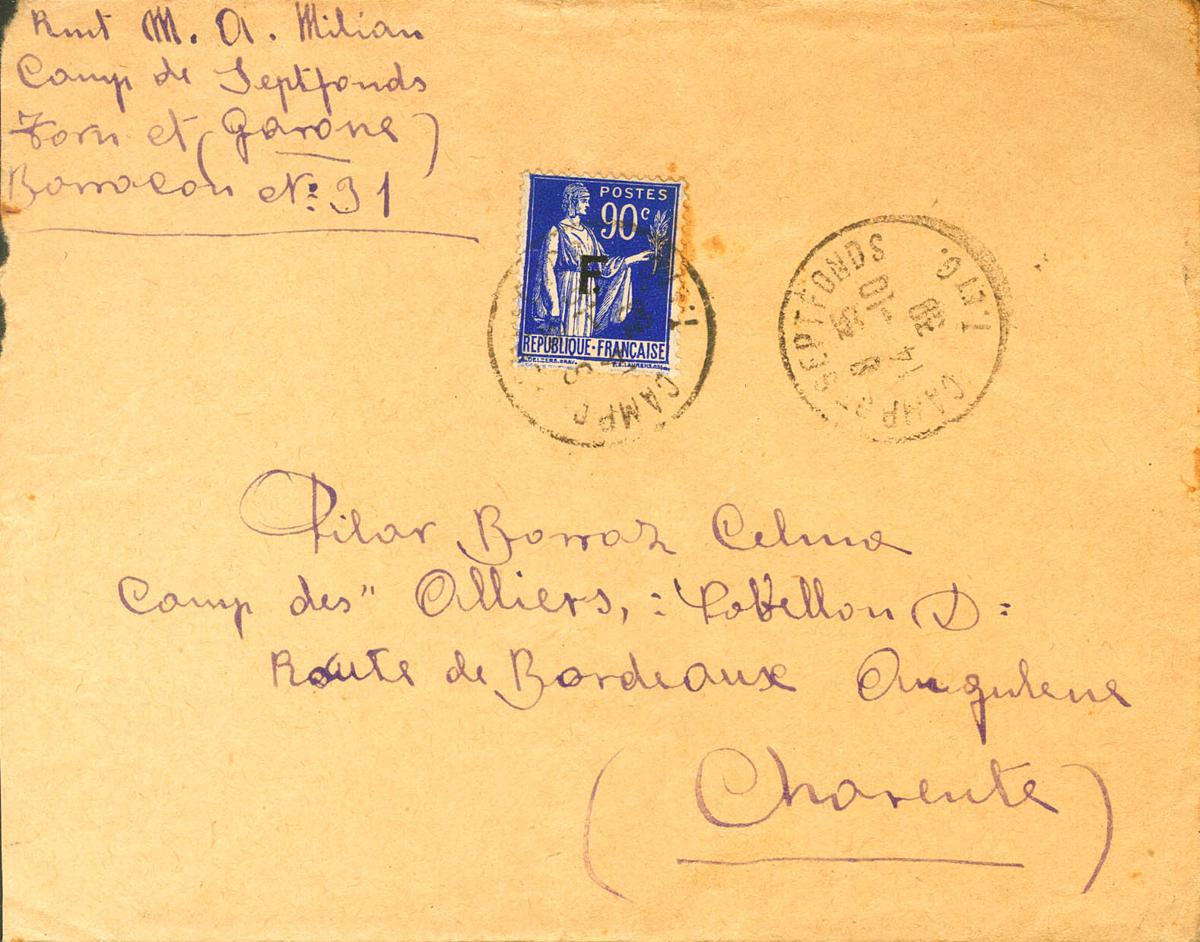 Rmt M. A. Milian
Camp de Septfonds
Torn et (Garone)
Barracon Nº: 31
POSTES
90c
F.
REPUBLIQUE·FRANÇAISE
CAMP D
CAMP D SEPTFONDS T. ET G.
14 8
39
Pilar Borraz Celma
Camp des" Alliers, : Pabellon D:
Route de Bordeaux Angulena
(Charente)